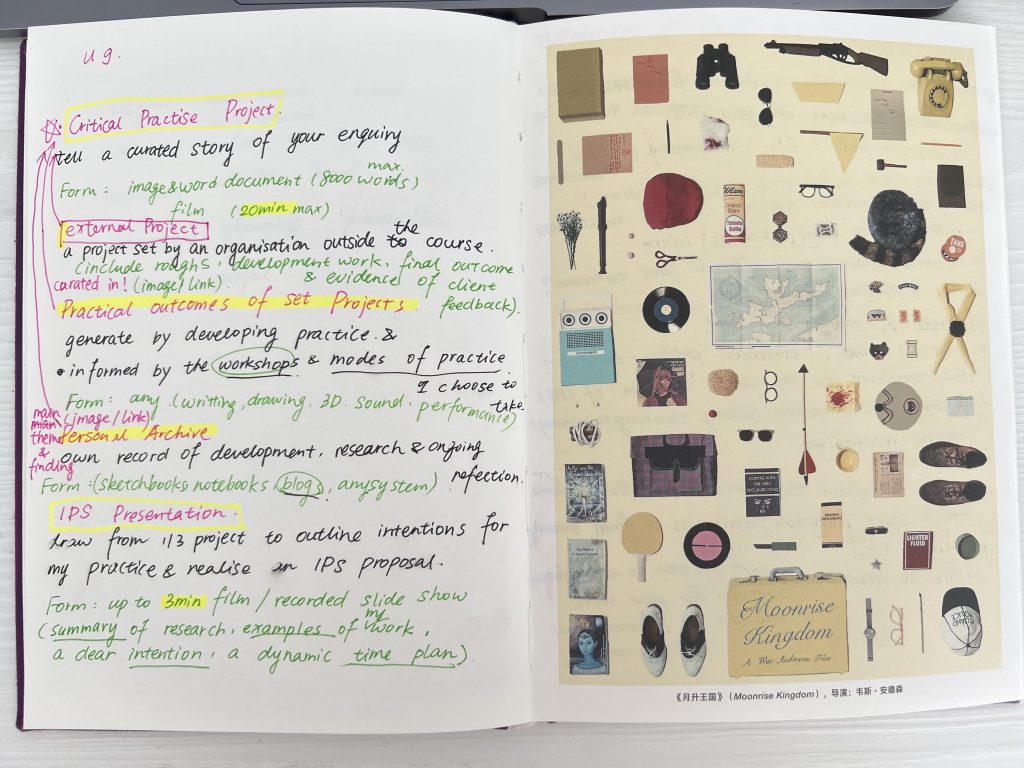 u g.
Critical Practise Project.
tell a curated story of your enquiry
max.
Form: image&word document (8000 words)
film (20min max)
external Project
the
a project set by an organisation outside to course.
(include roughs, development work, final outcome
curated in! (image/link). & evidence of client
Practical outcomes of set Projects feedback).
generate by developing practice. &
• informed by the workshops & modes of practice
I choose to
take.
Form: any (writting, drawing, 3D. sound, performance)
(image/link)
main
mian
theme
&
finding
Personal Archive
own record of development, research & ongoing
refection.
Form: (sketchbooks notebooks blogs, anysystem)
IPS Presentation.
draw from 1/3 project to outline intentions for
my practice & realise an IPS proposal.
Form: up to 3min film / recorded slide show
my
(summary of research, examples of work,
a clear intention, a dynamic time plan).
Wilson
Grand
Slam
Tennis
Balls
TANG
COPING
WITH THE
VERY
TROUBLED CHILD
LIGHTER
FLUID
Moonrise
Kingdom
A Wes Anderson Film
《月升王国》（Moonrise Kingdom），导演：韦斯·安德森